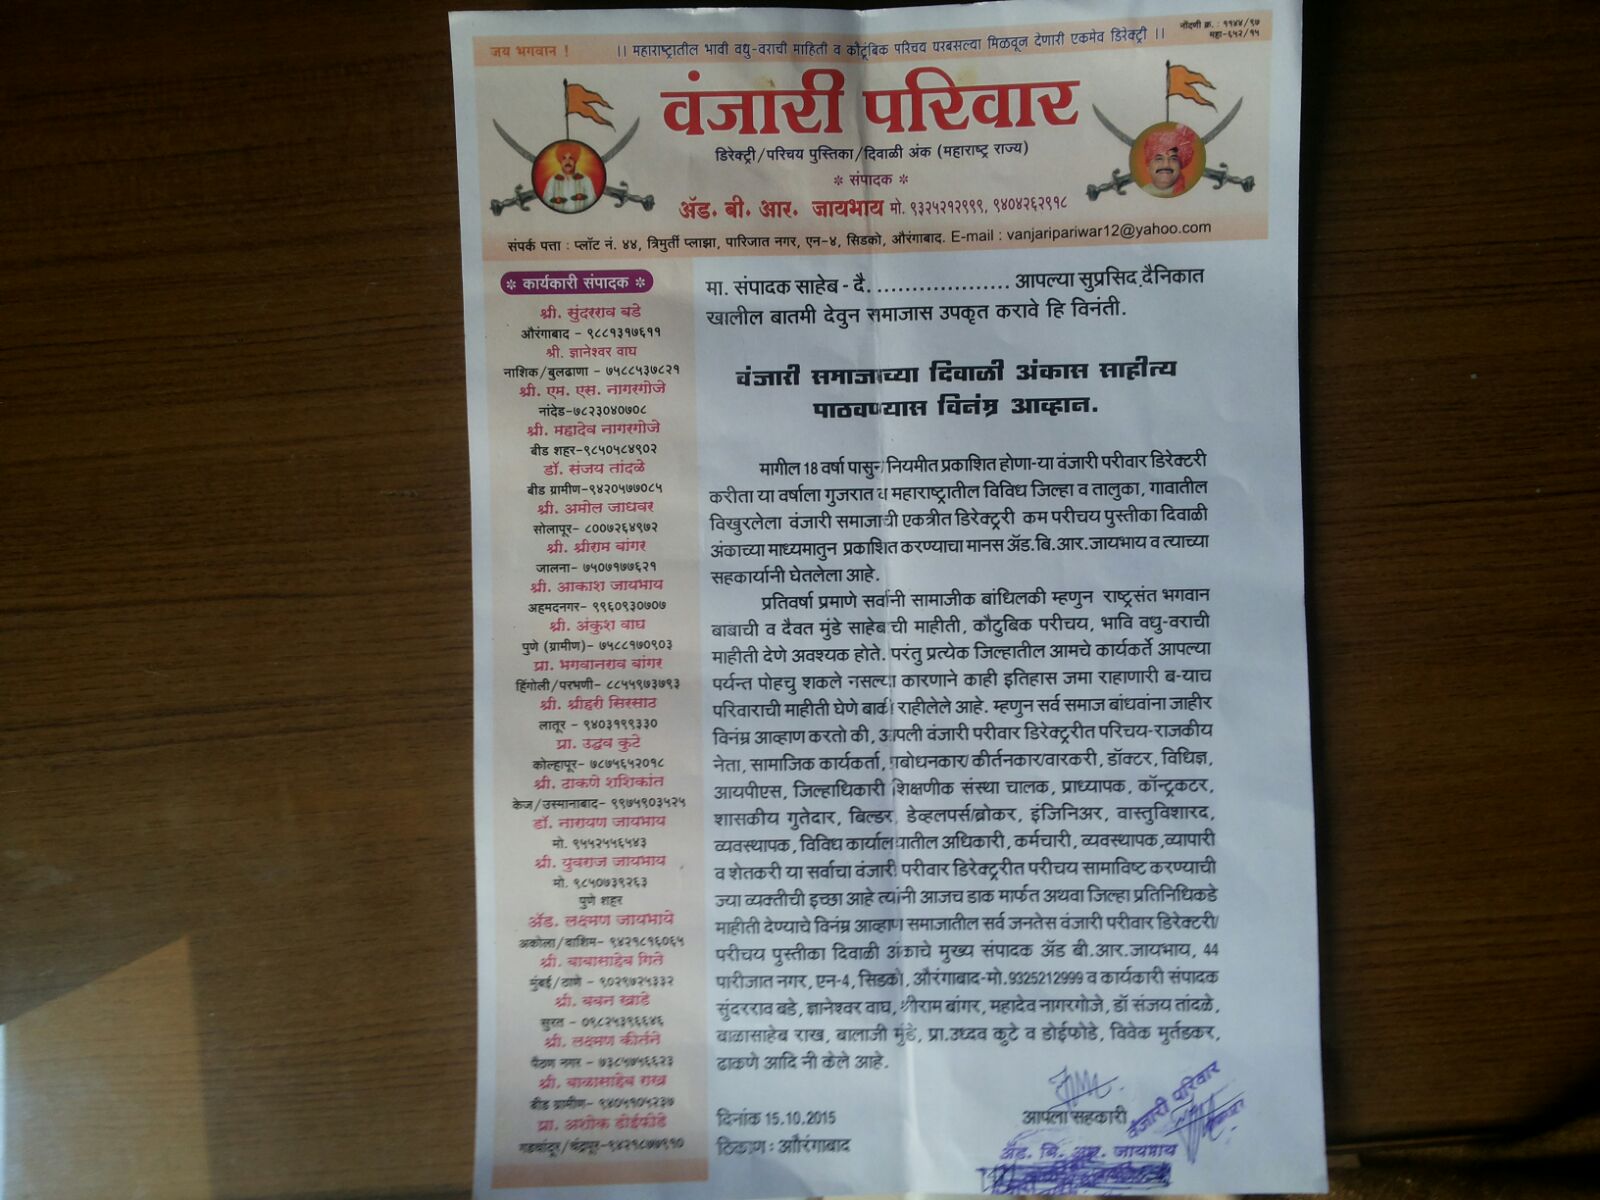 नोंदणी क्र. : ११४४/९७
महा-६५२/१५
जय भगवान !
।। महाराष्ट्रातील भावी वधु-वराची माहिती व कौटूंबिक परिचय घरबसल्या मिळवून देणारी एकमेव डिरेक्ट्री ।।
वंजारी परिवार
डिरेक्ट्री/परिचय पुस्तिका/दिवाळी अंक (महाराष्ट्र राज्य)
* संपादक *
ॲड. बी. आर. जायभाय मो. ९३२५२१२९९९, ९४०४२६२९१८
संपर्क पत्ता : प्लॉट नं. ४४, त्रिमुर्ती प्लाझा, पारिजात नगर, एन-४, सिडको, औरंगाबाद. E-mail : vanjaripariwar12@yahoo.com
* कार्यकारी संपादक *
श्री. सुंदरराव बडे
औरंगाबाद - ९८८१३१७६११
श्री. ज्ञानेश्वर वाघ
नाशिक/बुलढाणा - ७५८८५३७८२१
श्री. एम. एस. नागरगोजे
नांदेड-७८२३०४०७०८
श्री. महादेव नागरगोजे
बीड शहर-९८५०५८४९०२
डॉ. संजय तांदळे
बीड ग्रामीण-९४२०५७७०८५
श्री. अमोल जाधवर
सोलापूर- ८००७२६४९७२
श्री. श्रीराम बांगर
जालना- ७५०७१७७६२१
श्री. आकाश जायभाय
अहमदनगर- ९९६०९३०७०७
श्री. अंकुश वाघ
पुणे (ग्रामीण)- ७५८८१७०९०३
प्रा. भगवानराव बांगर
हिंगोली/परभणी- ८८५५९७३७९३
श्री. श्रीहरी सिरसाठ
लातूर - ९४०३१९९३३०
प्रा. उद्धव कुटे
कोल्हापूर- ७८७५६५२०१८
श्री. ढाकणे शशिकांत
केज/उस्मानाबाद- ९९७५९०३५२५
डॉ. नारायण जायभाय
मो. ९५५२५५६५४३
श्री. युवराज जायभाय
मो. ९८५०७३९२६३
पुणे शहर
ॲड. लक्ष्मण जायभाये
अकोला/वाशिम- ९४२१८१६०६५
श्री. बाबासाहेब गिते
मुंबई/ठाणे - ९०२९७२५३३२
श्री. बबन खाडे
सुरत - ०९८२५३९६६४६
श्री. लक्ष्मण कीर्तने
पैठण नगर - ७३८५७५६६२३
श्री. बाळासाहेब राख
बीड ग्रामीण- ९४०५१०५२३७
प्रा. अशोक डोईफोडे
गडचांदूर/चंद्रपूर-९४२१८७७९१०
मा. संपादक साहेब - दै. ................... आपल्या सुप्रसिद दैनिकात
खालील बातमी देवुन समाजास उपकृत करावे हि विनंती.
वंजारी समाजाच्या दिवाळी अंकास साहीत्य
पाठवण्यास विनंम्र आव्हान.
मागील 18 वर्षा पासुन नियमीत प्रकाशित होणा-या वंजारी परीवार डिरेक्टरी
करीता या वर्षाला गुजरात व महाराष्ट्रातील विविध जिल्हा व तालुका, गावातील
विखुरलेला वंजारी समाजाची एकत्रीत डिरेक्टुरी कम परीचय पुस्तीका दिवाळी
अंकाच्या माध्यमातुन प्रकाशित करण्याचा मानस ॲड.बि.आर.जायभाय व त्याच्या
सहकार्यानी घेतलेला आहे.
प्रतिवर्षा प्रमाणे सर्वांनी सामाजीक बांधिलकी म्हणुन राष्ट्रसंत भगवान
बाबाची व दैवत मुंडे साहेबाची माहीती, कौटुबिक परीचय, भावि वधु-वराची
माहीती देणे अवश्यक होते. परंतु प्रत्येक जिल्हातील आमचे कार्यकर्ते आपल्या
पर्यन्त पोहचु शकले नसल्या कारणाने काही इतिहास जमा राहाणारी ब-याच
परिवाराची माहीती घेणे बाकी राहीलेले आहे. म्हणुन सर्व समाज बांधवांना जाहीर
विनंम्र आव्हाण करतो की, आपली वंजारी परीवार डिरेक्टुरीत परिचय-राजकीय
नेता, सामाजिक कार्यकर्ता, प्रबोधनकार/ कीर्तनकार/वारकरी, डॉक्टर, विधिज्ञ,
आयपीएस, जिल्हाधिकारी शिक्षणीक संस्था चालक, प्राध्यापक, कॉन्ट्रकटर,
शासकीय गुतेदार, बिल्डर, डेव्हलपर्स/ब्रोकर, इंजिनिअर, वास्तुविशारद,
व्यवस्थापक, विविध कार्यालयातील अधिकारी, कर्मचारी, व्यवस्थापक, व्यापारी
व शेतकरी या सर्वाचा वंजारी परीवार डिरेक्टुरीत परीचय सामाविष्ट करण्याची
ज्या व्यक्तीची इच्छा आहे त्यांनी आजच डाक मार्फत अथवा जिल्हा प्रतिनिधिकडे
माहीती देण्याचे विनंम्र आव्हाण समाजातील सर्व जनतेस वंजारी परीवार डिरेक्टरी/
परीचय पुस्तीका दिवाळी अंकाचे मुख्य संपादक ॲड बी.आर.जायभाय, 44
पारीजात नगर, एन-4, सिडको, औरंगाबाद-मो.9325212999 व कार्यकारी संपादक
सुंदरराव बडे, ज्ञानेश्वर वाघ, श्रीराम बांगर, महादेव नागरगोजे, डॉ संजय तांदळे,
बाळासाहेब राख, बालाजी मुंडे, प्रा.उध्दव कुटे व डोईफोडे, विवेक मुर्तडकर,
ढाकणे आदि नी केले आहे.
दिनांक 15.10.2015
ठिकाण : औरंगाबाद
आपला सहकारी
वंजारी परिवार
ॲड. बि. आर. जायभाय